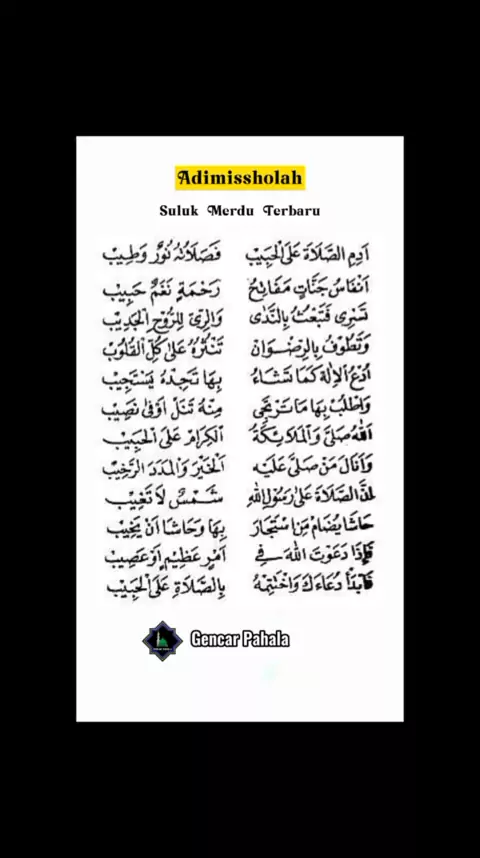 Adimissholah
Suluk Merdu Terbaru
اَدِمِ الصَّلَاةَ عَلَى الْحَبِيْبْ فَصَلَاتُهُ نُوْرٌ وَطِيْبْ
اَنْفَاسُ جَنَّاتٍ مَفَاتِحُ رَحْمَةٍ نَغَمٌ حَبِيْبْ
تَسْرِى فَتَبْعَثُ بِالنَّدٰى وَالرِّيِّ لِلرُّوْحِ الْجَدِيْبْ
وَتَطُوْفُ بِالرِّضْوَانْ تَنْثُرُهُ عَلٰى كُلِّ الْقُلُوْبْ
اُدْعُ الْاِلٰهَ كَمَا تَشَاءُ بِهَا تَجِدْهُ يَسْتَجِيْبْ
وَاطْلُبْ بِهَا مَا تَرْتَجِى مِنْهُ تَنَلْ اَوْفٰى نَصِيْبْ
اَللهُ صَلَّى وَالْمَلَائِكَةُ الْكِرَامْ عَلَى الْحَبِيْبْ
وَاَنَالَ مَنْ صَلَّى عَلَيْهِ الْخَيْرَ وَالْمَدَدَ الرَّخِيْبْ
اِنَّ الصَّلَاةَ عَلٰى رَسُوْلِ اللهِ شَمْسٌ لَا تَغِيْبْ
حَاشَا يُضَامُ مَنِ اسْتَجَارَ بِهَا وَحَاشَا اَنْ يَخِيْبْ
فَاِذَا دَعَوْتَ اللهَ فِي اَمْرٍ عَظِيْمٍ اَوْ عَصِيْبْ
فَابْدَأْ دُعَاءَكَ وَاخْتَتِمْهُ بِالصَّلَاةِ عَلَى الْحَبِيْبْ
Gencar Pahala